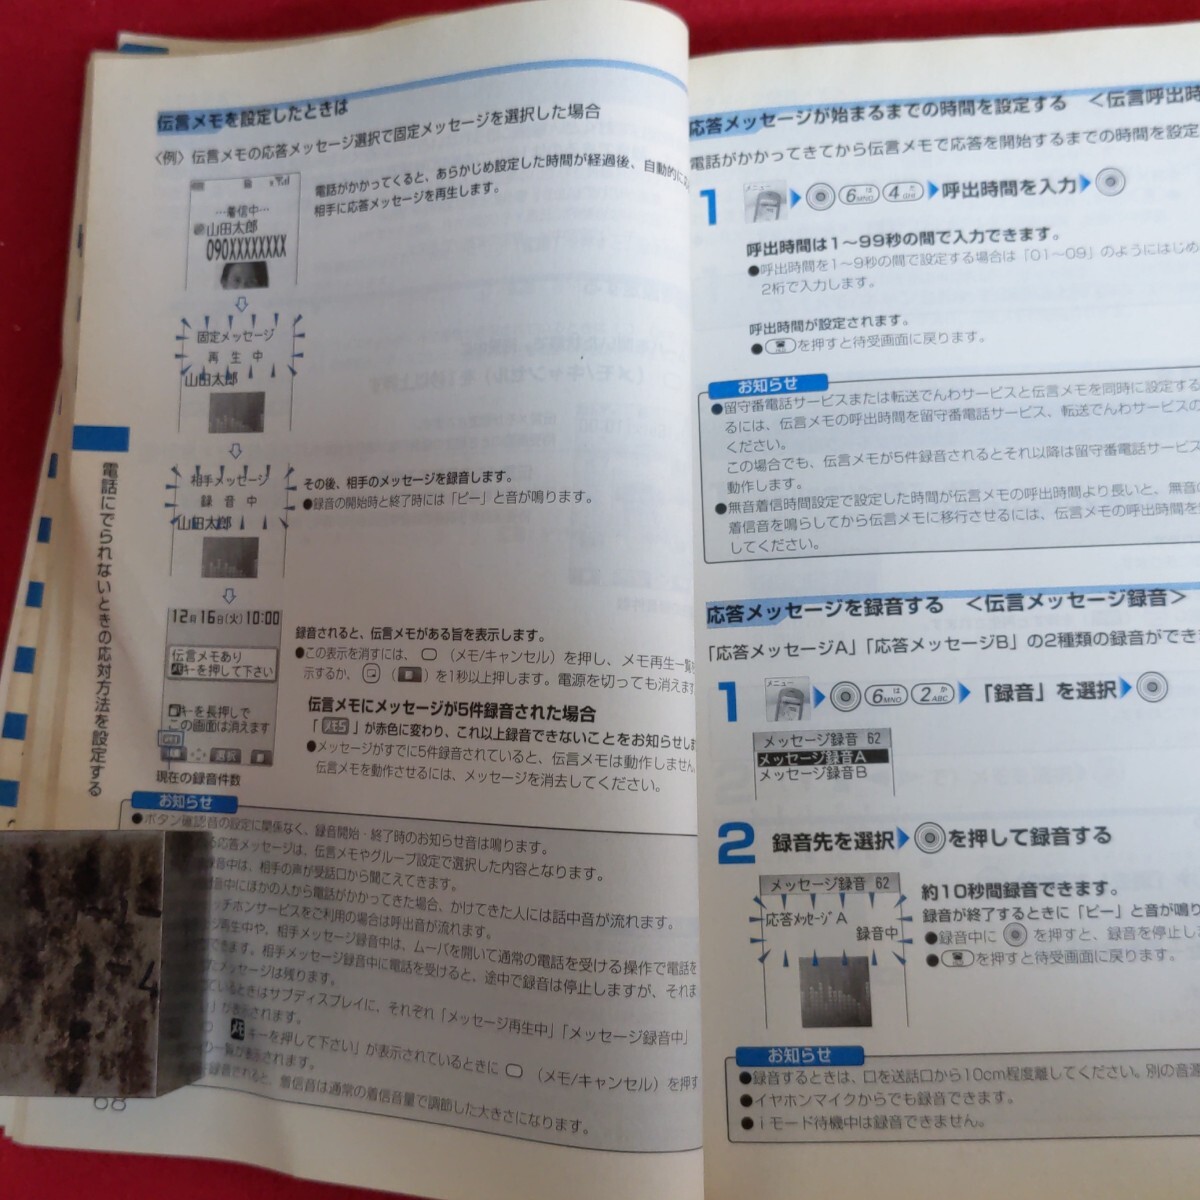 伝言メモを設定したときは
〈例〉伝言メモの応答メッセージ選択で固定メッセージを選択した場合
…着信中…
山田太郎
090XXXXXXXX
電話がかかってくると、あらかじめ設定した時間が経過後、自動的に
相手に応答メッセージを再生します。
固定メッセージ
再生中
山田太郎
相手メッセージ
録音中
山田太郎
その後、相手のメッセージを録音します。
●録音の開始時と終了時には「ピー」と音が鳴ります。
12月16日(火)10:00
伝言メモあり
キーを押して下さい
キーを長押しで
この画面は消えます
選択
現在の録音件数
録音されると、伝言メモがある旨を表示します。
●この表示を消すには、（メモ/キャンセル）を押し、メモ再生一覧
示するか、（）を1秒以上押します。電源を切っても消えます
伝言メモにメッセージが5件録音された場合
「」が赤色に変わり、これ以上録音できないことをお知らせしま
●メッセージがすでに5件録音されていると、伝言メモは動作しません。
伝言メモを動作させるには、メッセージを消去してください。
お知らせ
●ボタン確認音の設定に関係なく、録音開始・終了時のお知らせ音は鳴ります。
る応答メッセージは、伝言メモやグループ設定で選択した内容となります。
録音中は、相手の声が受話口から聞こえてきます。
音中にほかの人から電話がかかってきた場合、かけてきた人には話中音が流れます。
ッチホンサービスをご利用の場合は呼出音が流れます。
ジ再生中や、相手メッセージ録音中は、ムーバを開いて通常の電話を受ける操作で電話を
できます。相手メッセージ録音中に電話を受けると、途中で録音は停止しますが、それま
たメッセージは残ります。
ているときはサブディスプレイに、それぞれ「メッセージ再生中」「メッセージ録音中」
」が表示されます。
キーを押して下さい」が表示されているときに（メモ/キャンセル）を押す
の一覧が表示されます。
録音されると、着信音は通常の着信音量で調節した大きさになります。
68
電話にでられないときの応対方法を設定する
応答メッセージが始まるまでの時間を設定する ＜伝言呼出時
電話がかかってきてから伝言メモで応答を開始するまでの時間を設定
1 メニュー 6 4 呼出時間を入力
呼出時間は1～99秒の間で入力できます。
●呼出時間を1～9秒の間で設定する場合は「01～09」のようにはじめ
2桁で入力します。
呼出時間が設定されます。
●を押すと待受画面に戻ります。
お知らせ
●留守番電話サービスまたは転送でんわサービスと伝言メモを同時に設定する
るには、伝言メモの呼出時間を留守番電話サービス、転送でんわサービスの
ください。
この場合でも、伝言メモが5件録音されるとそれ以降は留守番電話サービス
動作します。
●無音着信時間設定で設定した時間が伝言メモの呼出時間より長いと、無音の
着信音を鳴らしてから伝言メモに移行させるには、伝言メモの呼出時間を
してください。
応答メッセージを録音する ＜伝言メッセージ録音＞
「応答メッセージA」「応答メッセージB」の2種類の録音ができ
1 メニュー 6 2 「録音」を選択
メッセージ録音 62
メッセージ録音A
メッセージ録音B
2 録音先を選択 を押して録音する
メッセージ録音 62
応答メッセージA
録音中
約10秒間録音できます。
録音が終了するときに「ピー」と音が鳴り
●録音中に を押すと、録音を停止し
●を押すと待受画面に戻ります。
お知らせ
●録音するときは、口を送話口から10cm程度離してください。別の音源
●イヤホンマイクからでも録音できます。
●iモード待機中は録音できません。